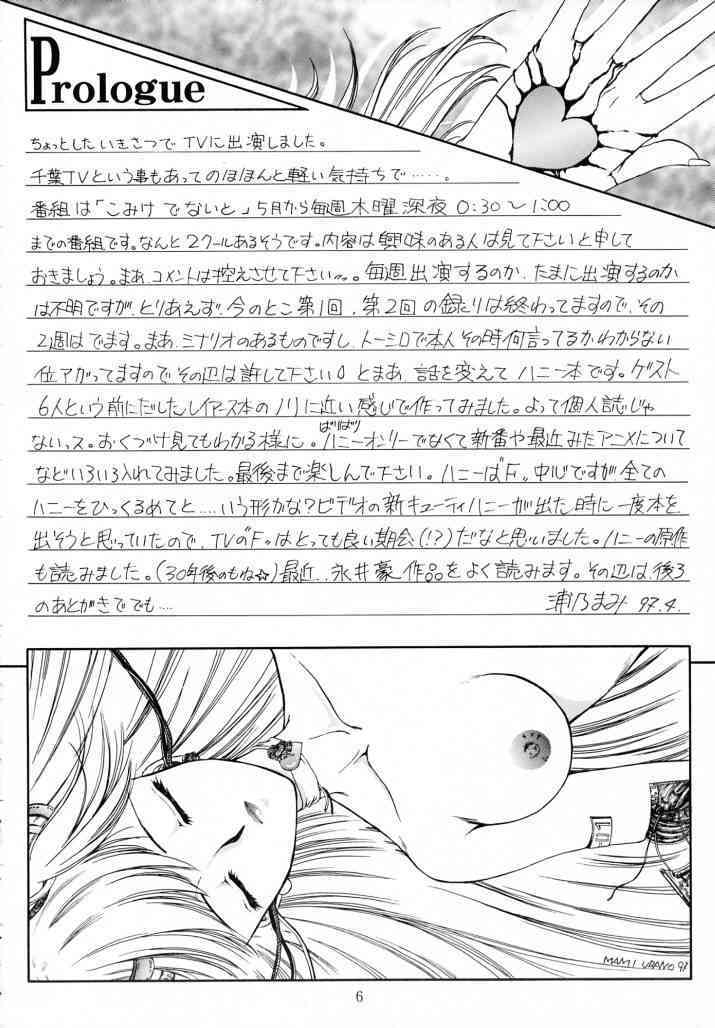 Prologue
ちょっとした いきさつで TVに出演しました。
千葉TVという事もあってのほほんと軽い気持ちで……。
番組は「こみけ でないと」5月から毎週木曜深夜 0:30〜1:00
までの番組です。なんと2クールあるそうです。内容は興味のある人は見て下さいと申して
おきましょう。まあ、コメントは控えさせて下さい。毎週出演するのか、たまに出演するのか
は不明ですが、とりあえず、今のとこ第1回、第2回の録りは終わってますので、その
2週はでます。まあ、シナリオのあるものですし、トーシロで本人その時何言ってるかわからない
位アガってますのでその辺は許して下さい とまあ 話を変えて ハニー本です。ゲスト
6人という前にだしたレイアース本のノリに近い感じで作ってみました。よって個人誌じゃ
ないっス。おくづけ見てもわかる様に。ばりばりハニーオンリーでなくて新番や最近みたアニメについて
などいろいろ入れてみました。最後まで楽しんで下さい。ハニーは“F”中心ですが全ての
ハニーをひっくるめてと……いう形かな?ビデオの新キューティハニーが出た時に一度本を
出そうと思っていたので、TVの“F”はとっても良い期会(!?)だなと思いました。ハニーの原作
も読みました。(30年後のもね☆)最近、永井豪作品をよく読みます。その辺は、後ろ
のあとがきででも…
浦乃まみ 97.4.
MAMI URANO 97
6